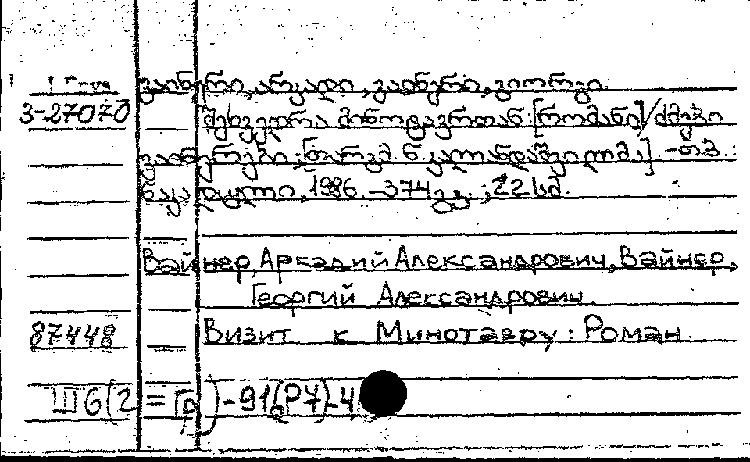 ვაინერი, არკადი, ვაინერი, გიორგი.
3-27070 შეხვედრა მინოტავრთან: [რომანი] / ძმები
ვაინერები; [თარგმ. ნ. კალანდაშვილმა]. -თბ.:
ნაკადული, 1986. -374 გვ.; 22 სმ.
Вайнер, Аркадий Александрович, Вайнер,
Георгий Александрович.
87448 Визит к Минотавру: Роман
Ш6(2=Гр)-91(Р7)-4